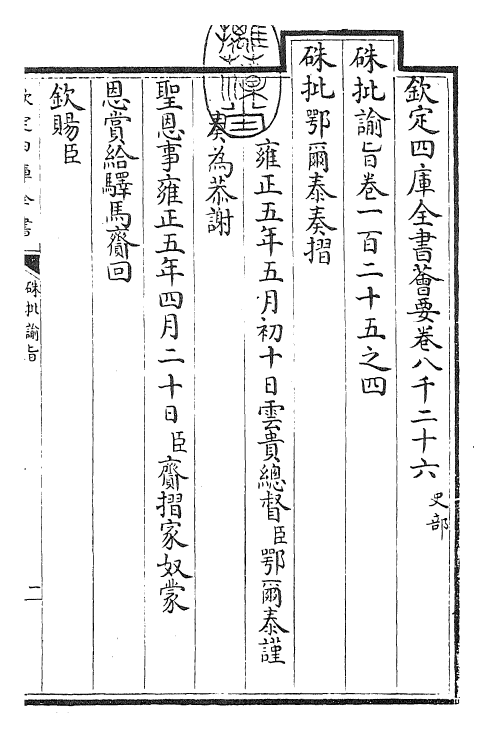 欽定四庫全書薈要卷八千二十六 史部
硃批諭旨卷一百二十五之四
硃批鄂爾泰奏摺
雍正五年五月初十日雲貴總督臣鄂爾泰謹
奏為恭謝
聖恩事雍正五年四月二十日臣齎摺家奴蒙
恩賞給驛馬齎回
欽賜臣
欽定四庫全書
硃批諭旨